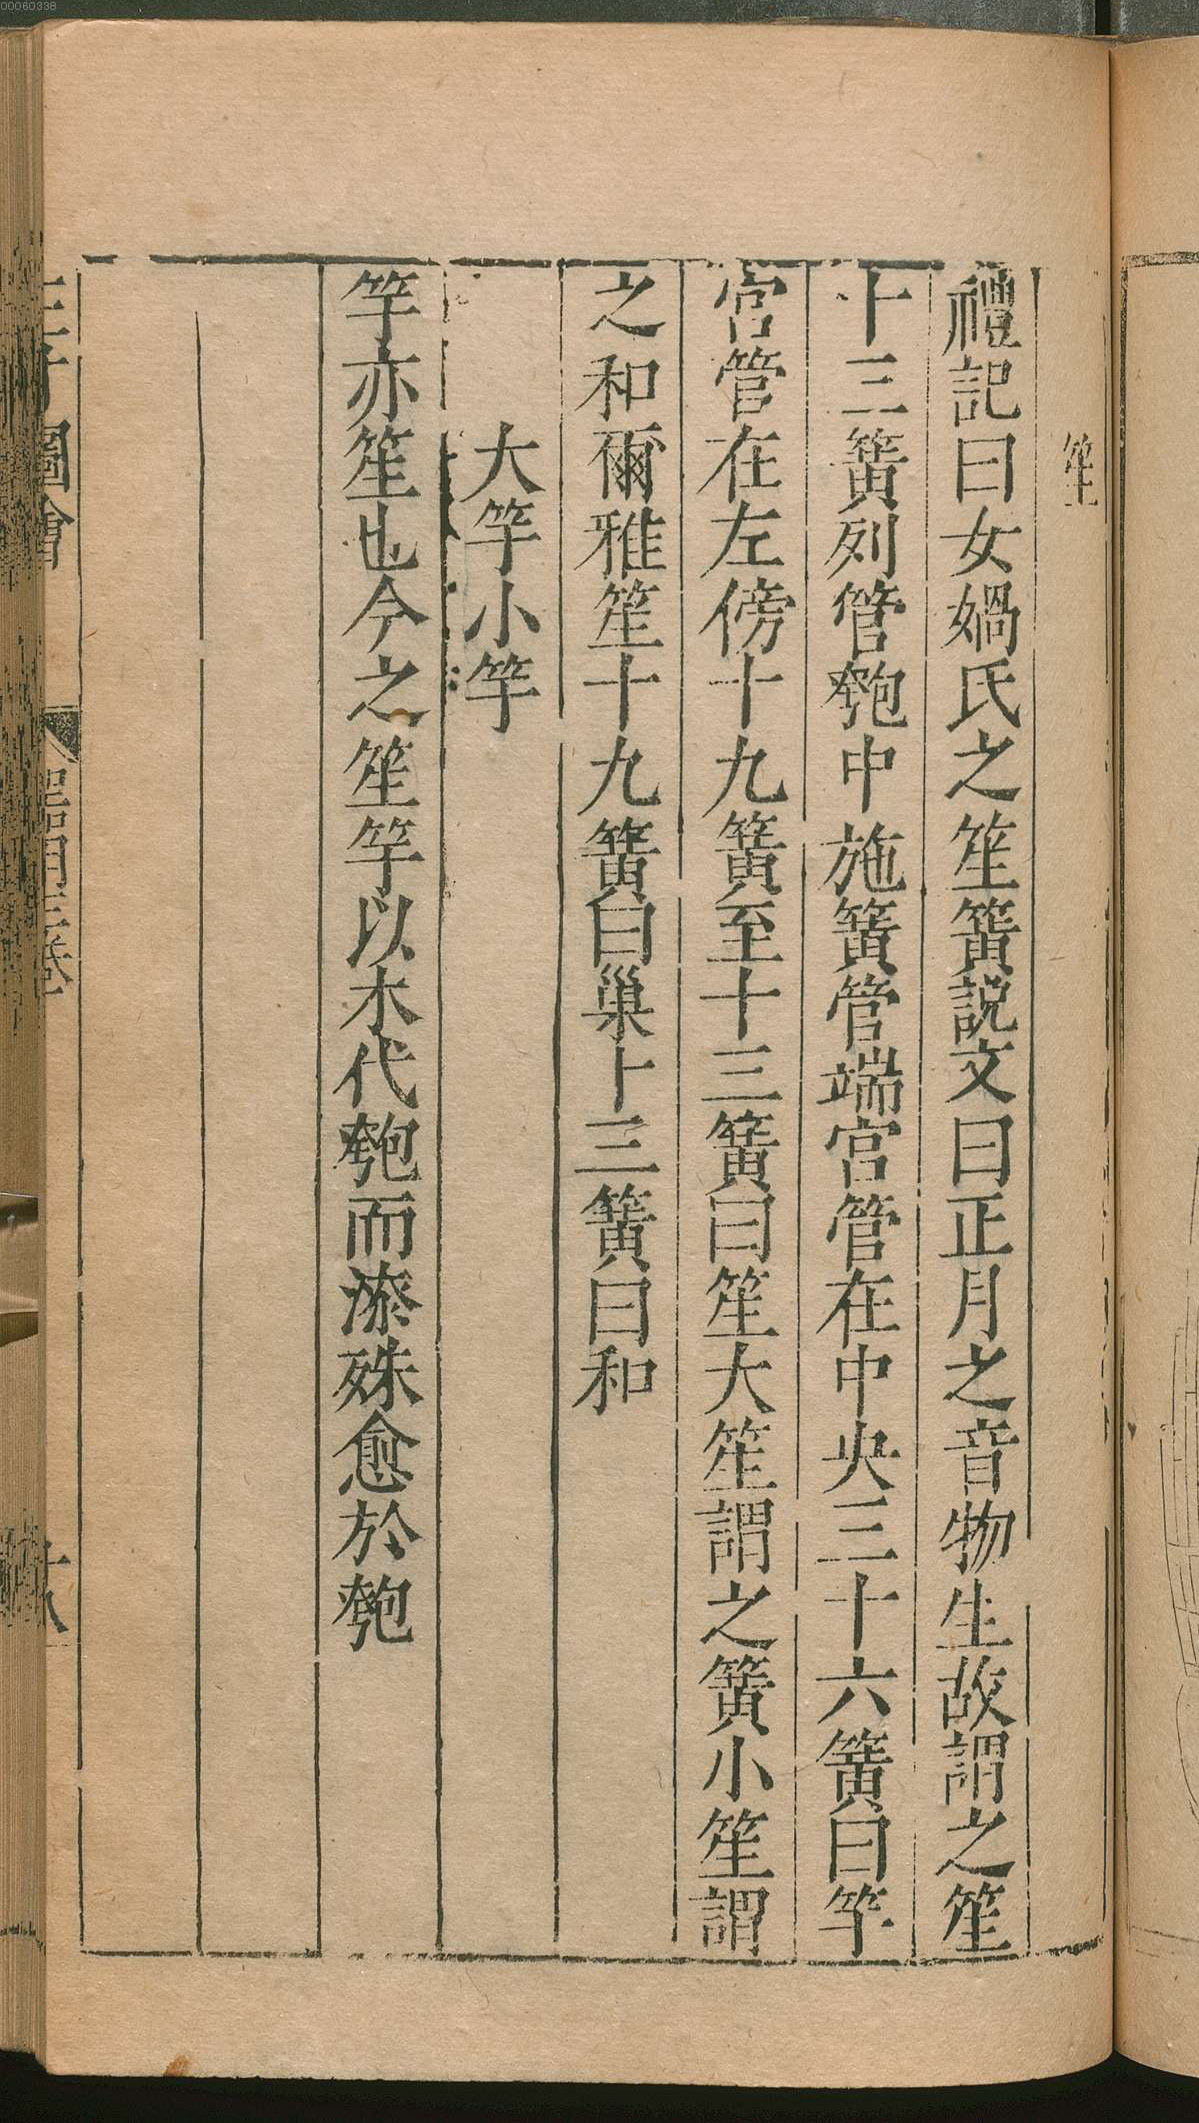 00060338
笙
禮記曰女媧氏之笙簧説文曰正月之音物生故謂之笙
十三簧列管匏中施簧管端宫管在中央三十六簧曰竽
宫管在左傍十九簧至十三簧曰笙大笙謂之簧小笙謂
之和爾雅笙十九簧曰巢十三簧曰和
大竽小竽
竽亦笙也今之笙竽以木代匏而漆殊愈於匏
圖會